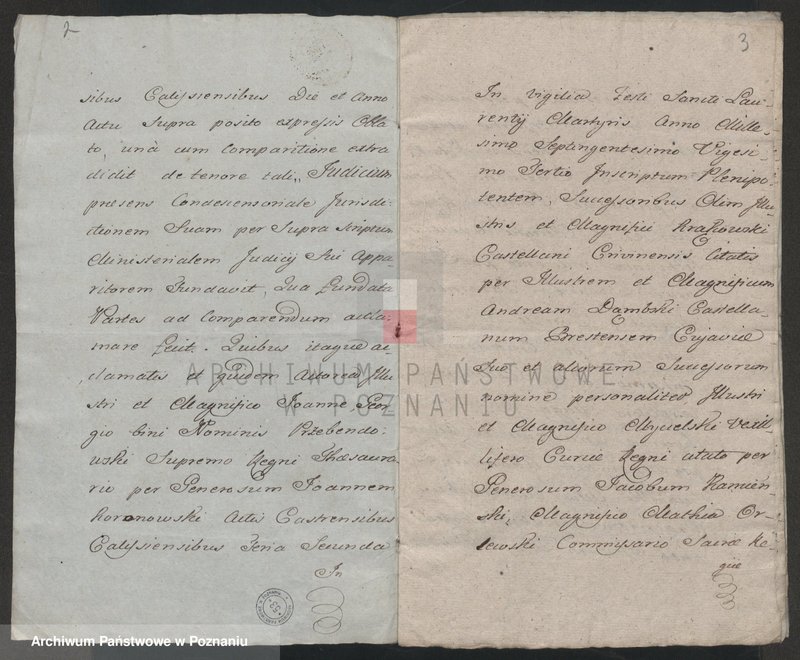 2
sibus Calissiensibus Die et Anno
Actu Supra posito expressis Obla
to, unà cum comparitione extra
didit de tenore tali, Judicium
praesens Condescensoriale Jurisdi-
ctionem Suam per Supra scriptum
Ministerialem Judicij Sui Appa
ritorem Fundavit, Qua Fundata
Partes ad comparendum accla-
mare fecit. Quibus itaque ac
clamatis et quidem Actorea Illu
stri et Magnifico Joanne Geor
gio bini Nominis Przebendo-
wski Supremo Regni Thesaura-
rio per Generosum Joannem
Koronowski Actis Castrensibus
Calissiensibus Feria Secunda
In
3
In vigilia Festi Sancti Lau-
rentij Martyris Anno Mille-
simo Septingentesimo Vigesi-
mo Tertio Inscriptum Plenipo-
tentem, Successoribus Olim Illu-
stris et Magnifici Krakowski
Castellani Crivinensis Citatis
per Illustrem et Magnificum
Andream Dąmbski Castella-
num Brestensem Cujaviae
Suo et aliorum Successorum
nomine personaliter Illustri
et Magnifico Mycielski Vexil
lifero Curiae Regni citato per
Generosum Jacobum Kamień-
ski, Magnifico Mathia Or-
lewski Commissario Sacrae Re-
giae
ARCHIWUM PAŃSTWOWE
W POZNANIU
Archiwum Państwowe w Poznaniu